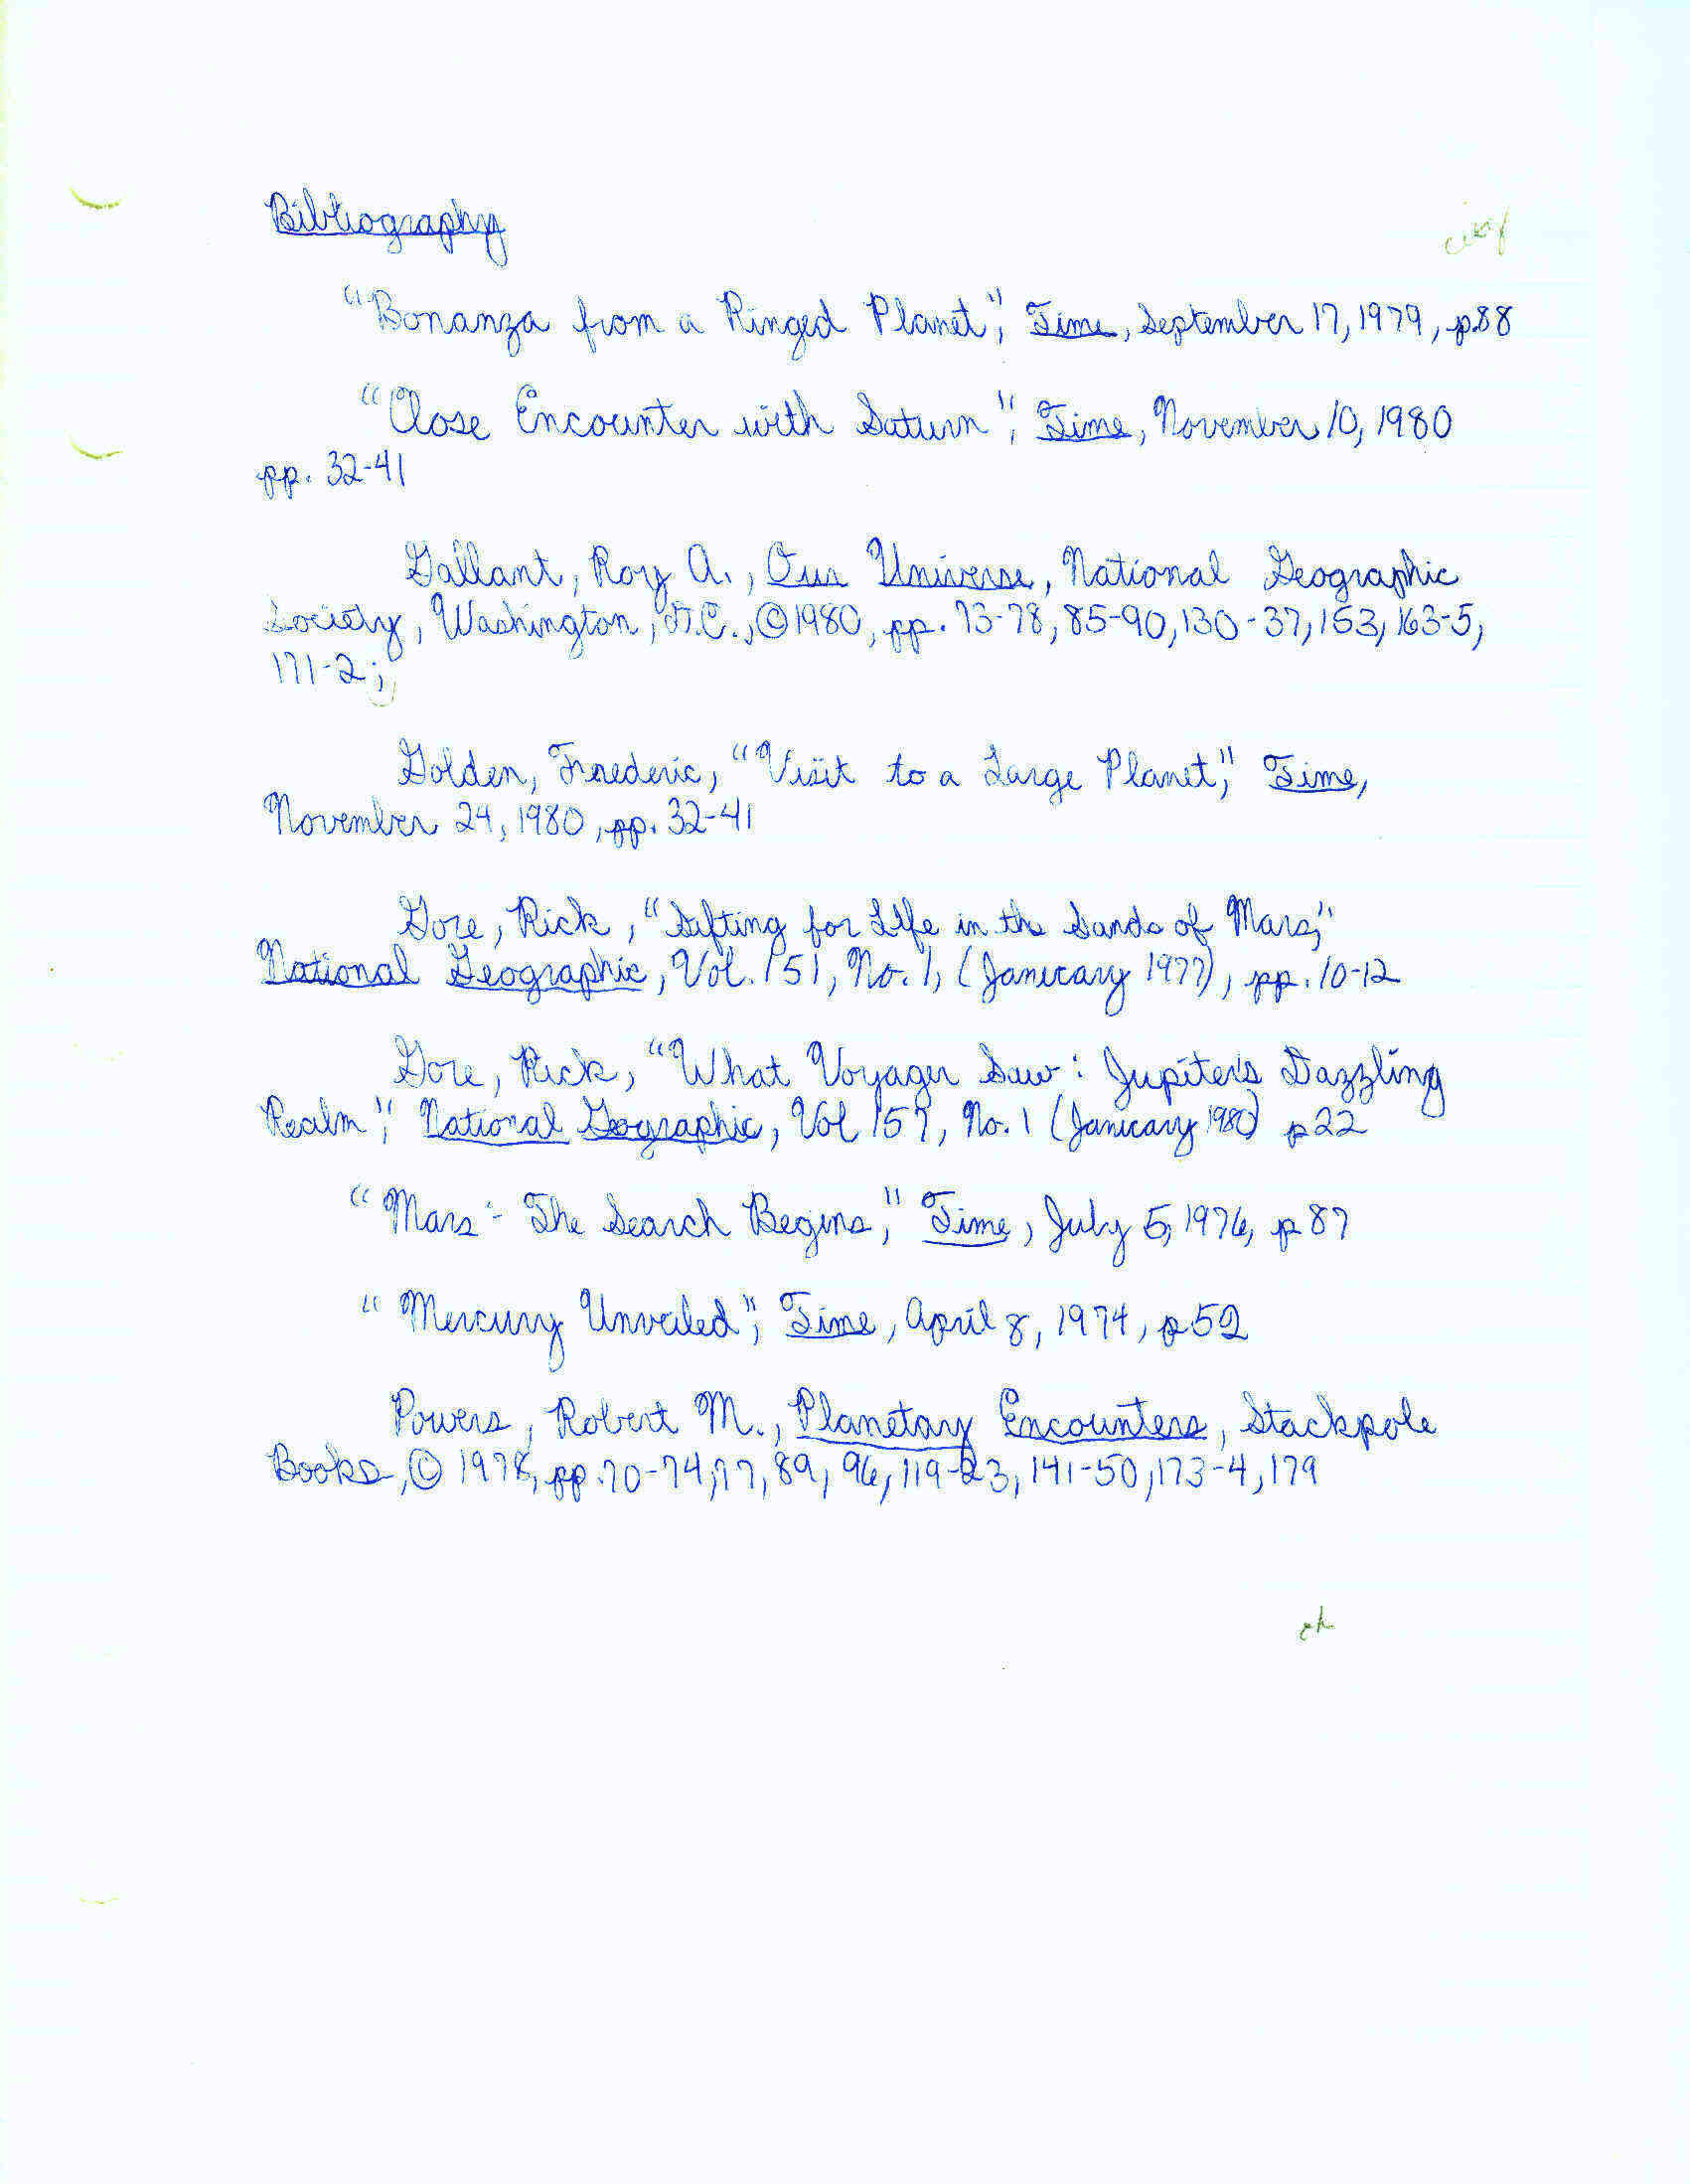 Bibliography
"Bonanza from a Ringed Planet", Time, September 17, 1979, p.88
"Close Encounter with Saturn", Time, November 10, 1980
pp. 32-41
Gallant, Roy A., Our Universe, National Geographic
Society, Washington, D.C., ©1980, pp. 73-78, 85-90, 130-37, 153, 163-5,
171-2;
Golden, Frederic, "Visit to a Large Planet," Time,
November 24, 1980, pp. 32-41
Gore, Rick, "Sifting for Life in the Sands of Mars,"
National Geographic, Vol. 151, No. 1, (January 1977), pp. 10-12
Gore, Rick, "What Voyager Saw: Jupiter's Dazzling
Realm", National Geographic, Vol 157, No. 1 (January 1980) p22
"Mars: The Search Begins," Time, July 5, 1976, p 87
"Mercury Unveiled", Time, April 8, 1974, p.52
Powers, Robert M., Planetary Encounters, Stackpole
Books, © 1978, pp. 70-74, 77, 89, 96, 119-23, 141-50, 173-4, 179